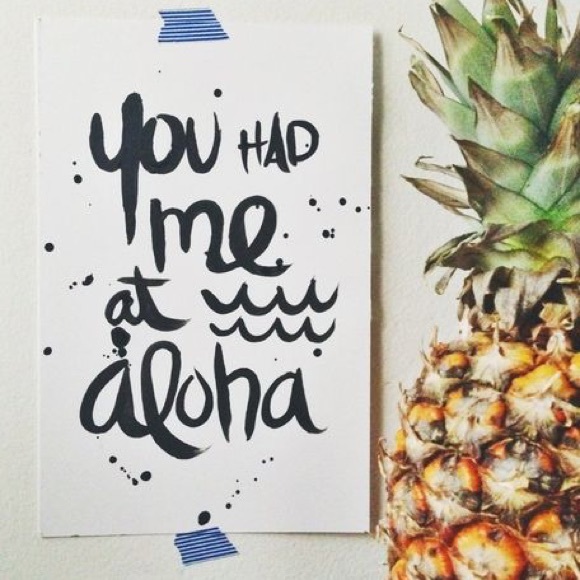 you HAD
me
at
aloha